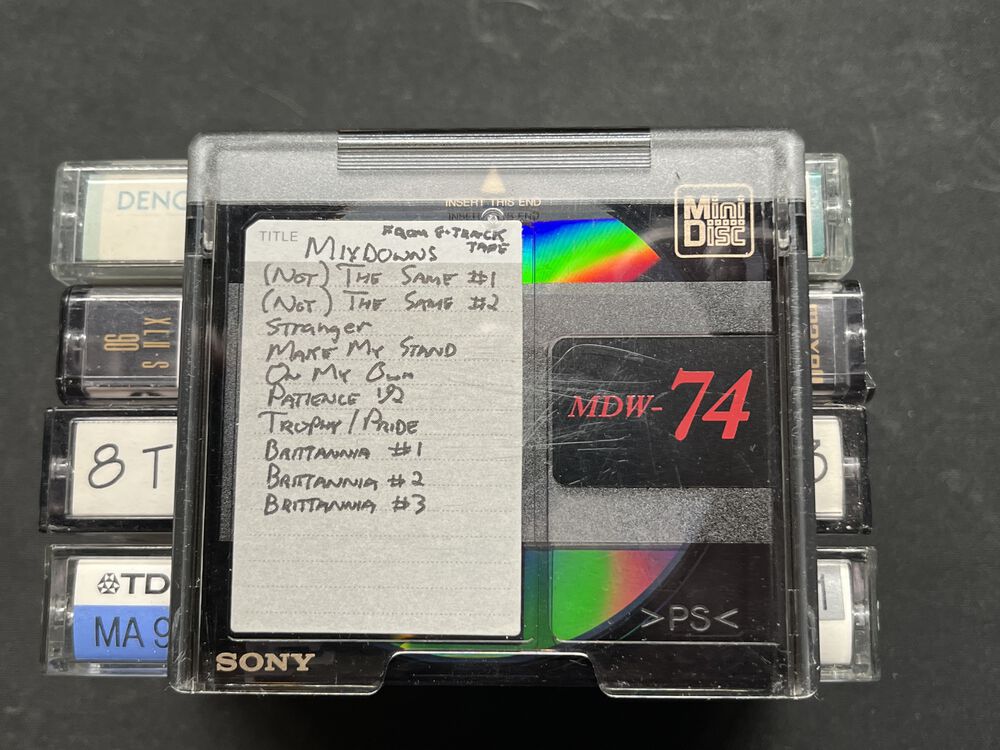 INSERT THIS END
Mini
Disc
TITLE
FROM 8-TRACK
TAPE
MIXDOWNS
(NOT) THE SAME #1
(NOT) THE SAME #2
Stranger
MAKE MY STAND
ON MY OWN
PATIENCE '92
TROPHY/PRIDE
BRITTANNIA #1
BRITTANNIA #2
BRITTANNIA #3
MDW-74
>PS<
SONY
DENO
XLII·S
90
maxell
8 T
3
TD
MA 9
1